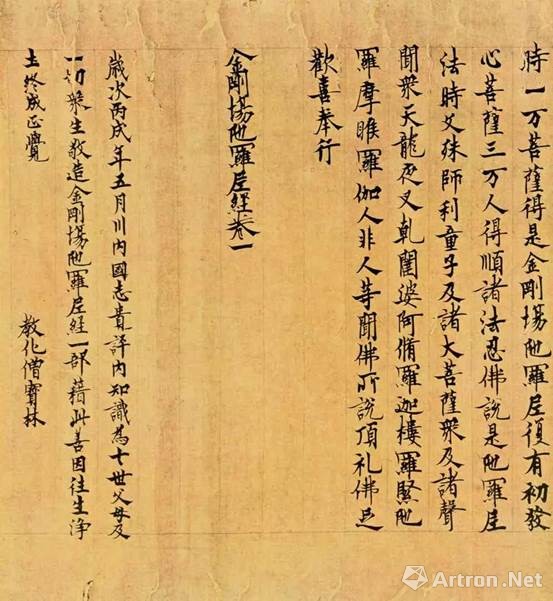 時一万菩薩得是金剛場陁羅尼復有初發
心菩薩三万人得順諸法忍佛說是陁羅尼
法時文殊師利童子及諸大菩薩衆及諸聲
聞衆天龍夜叉乹闥婆阿脩羅迦樓羅緊陁
羅摩睺羅伽人非人等聞佛所說頂礼佛足
歡喜奉行
金剛場陁羅尼經卷一
歳次丙戌年五月川内國志貴評内知識為七世父母及
一切衆生敬造金剛場陁羅尼經一部藉此善因往生浄
土終成正覺
教化僧寳林
Artron.Net